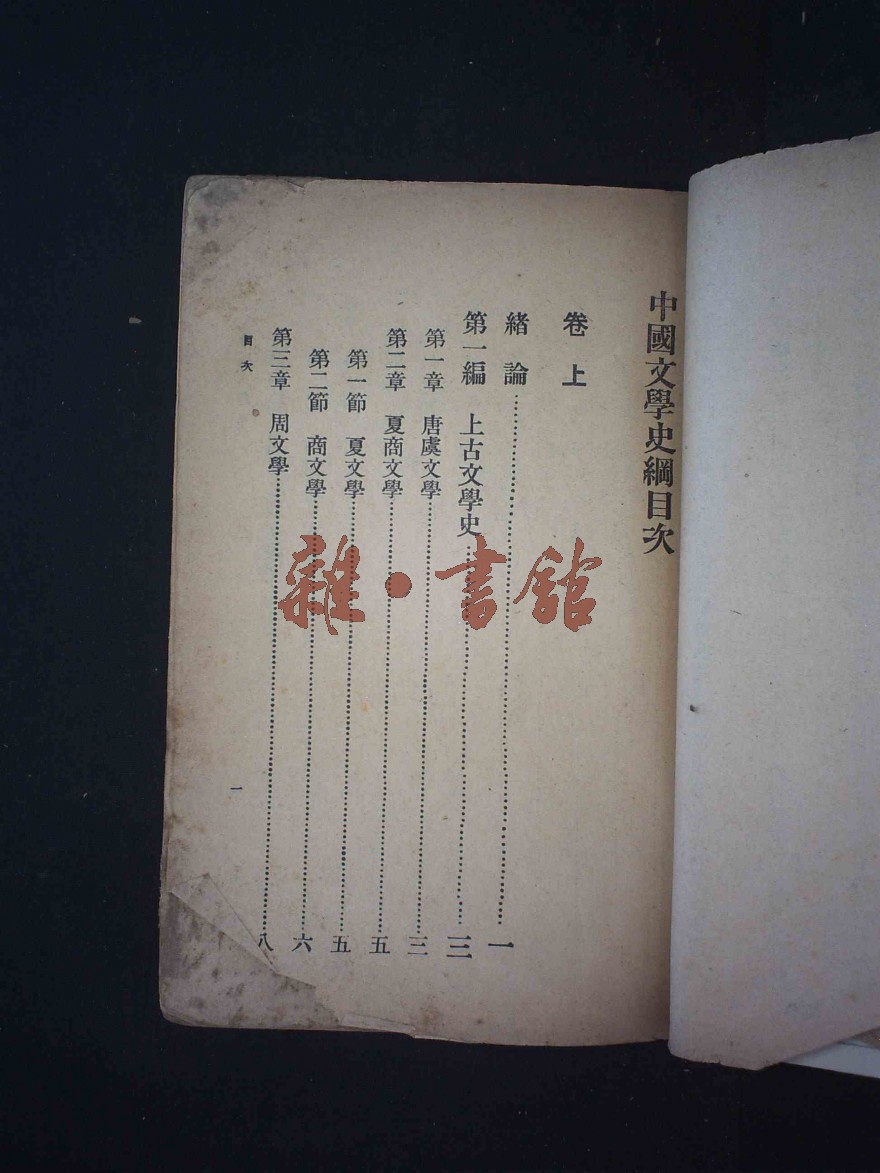 中國文學史綱目次
卷上
緒論⋯⋯⋯⋯⋯⋯⋯⋯一
第一編　上古文學史⋯⋯⋯⋯⋯⋯⋯⋯三
第一章　唐虞文學⋯⋯⋯⋯⋯⋯⋯⋯三
第二章　夏商文學⋯⋯⋯⋯⋯⋯⋯⋯五
第一節　夏文學⋯⋯⋯⋯⋯⋯⋯⋯五
第二節　商文學⋯⋯⋯⋯⋯⋯⋯⋯六
第三章　周文學⋯⋯⋯⋯⋯⋯⋯⋯八
目次
一
雜·書館